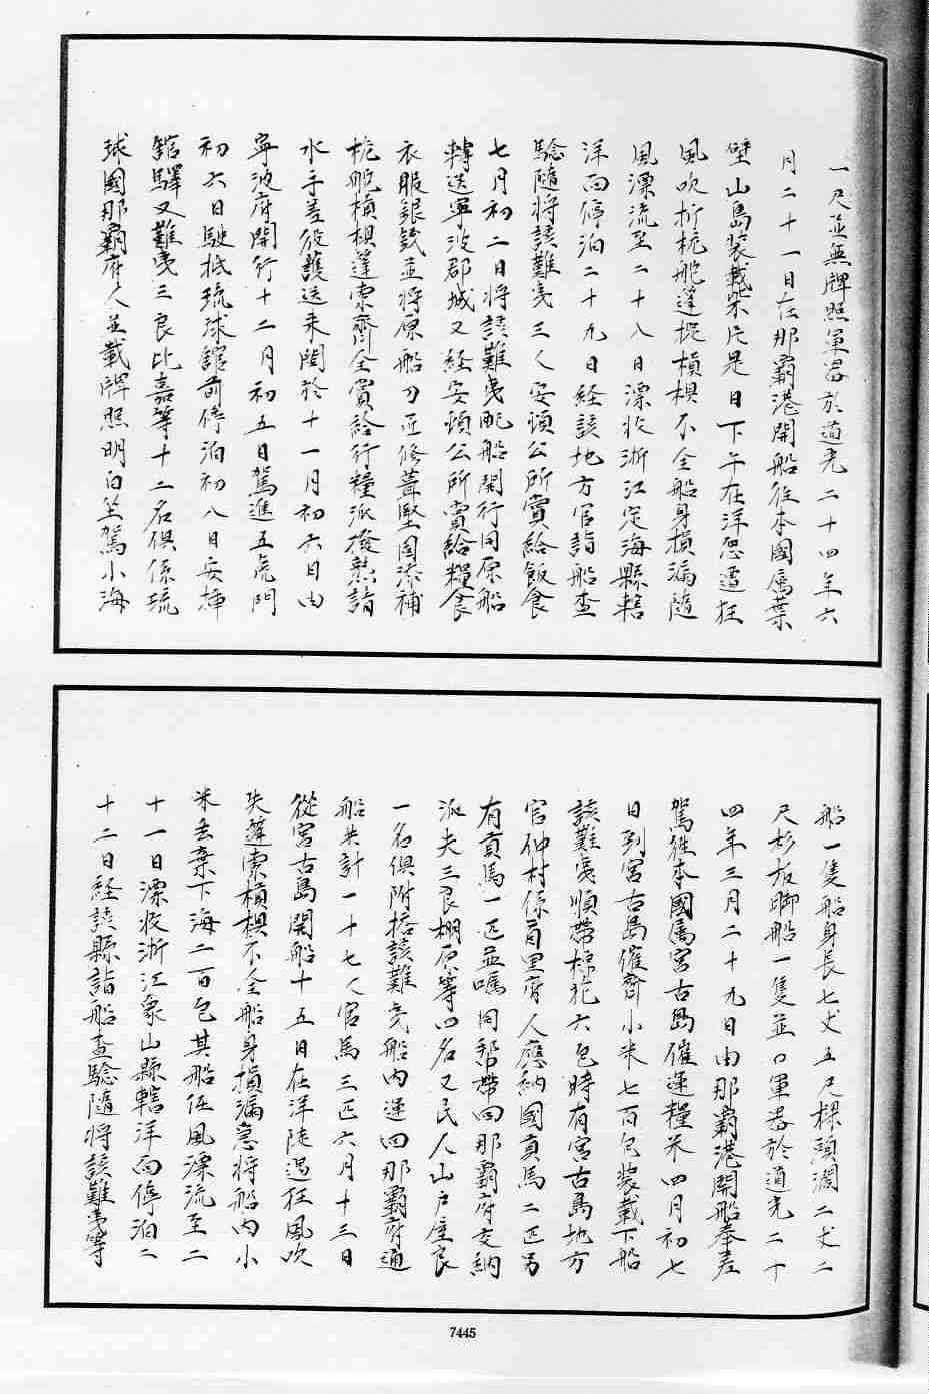 一尺並無牌照軍器於道光二十四年六
月二十一日在那霸港開船往本國屬葉
壁山島裝載柴片是日下午在洋忽遭狂
風吹折桅舵蓬椗槓椇不全船身損漏隨
風漂流至二十八日漂收浙江定海縣轄
洋面停泊二十九日經該地方官詣船查
驗隨將該難夷三人安頓公所賞給飯食
七月初二日將該難夷配船開行同原船
轉送寧波郡城又經安頓公所賞給糧食
衣服銀錢並將原船刀匠修葺堅固添補
桅舵槓椇蓬索齊全賞給行糧派撥熟諳
水手差役護送來閩於十一月初六日由
寧波府開行十二月初五日駕進五虎門
初六日駛抵琉球館前停泊初八日安插
館驛又難夷三良比嘉等十二名俱係琉
球國那霸府人並載牌照明白坐駕小海
船一隻船身長七丈五尺樑頭濶二丈二
尺杉板腳船一隻並口軍器於道光二十
四年三月二十九日由那霸港開船奉差
駕往本國屬宮古島催運糧米四月初七
日到宮古島催齊小米七百包裝載下船
該難夷順帶棕花六包時有宮古島地方
官仲村係首里府人應納國貢馬二匹另
有貢馬一匹並囑同幫帶回那霸府交納
派夫三良棚原等四名又民人山戶座良
一名俱附搭該難夷船內運回那霸府通
船共計一十七人官馬三匹六月十三日
從宮古島開船十五日在洋陡遇狂風吹
失蓬索槓椇不全船身損漏急將船內小
米丟棄下海二百包其船任風漂流至二
十一日漂收浙江象山縣轄洋面停泊二
十二日經該縣詣船查驗隨將該難夷等
7445